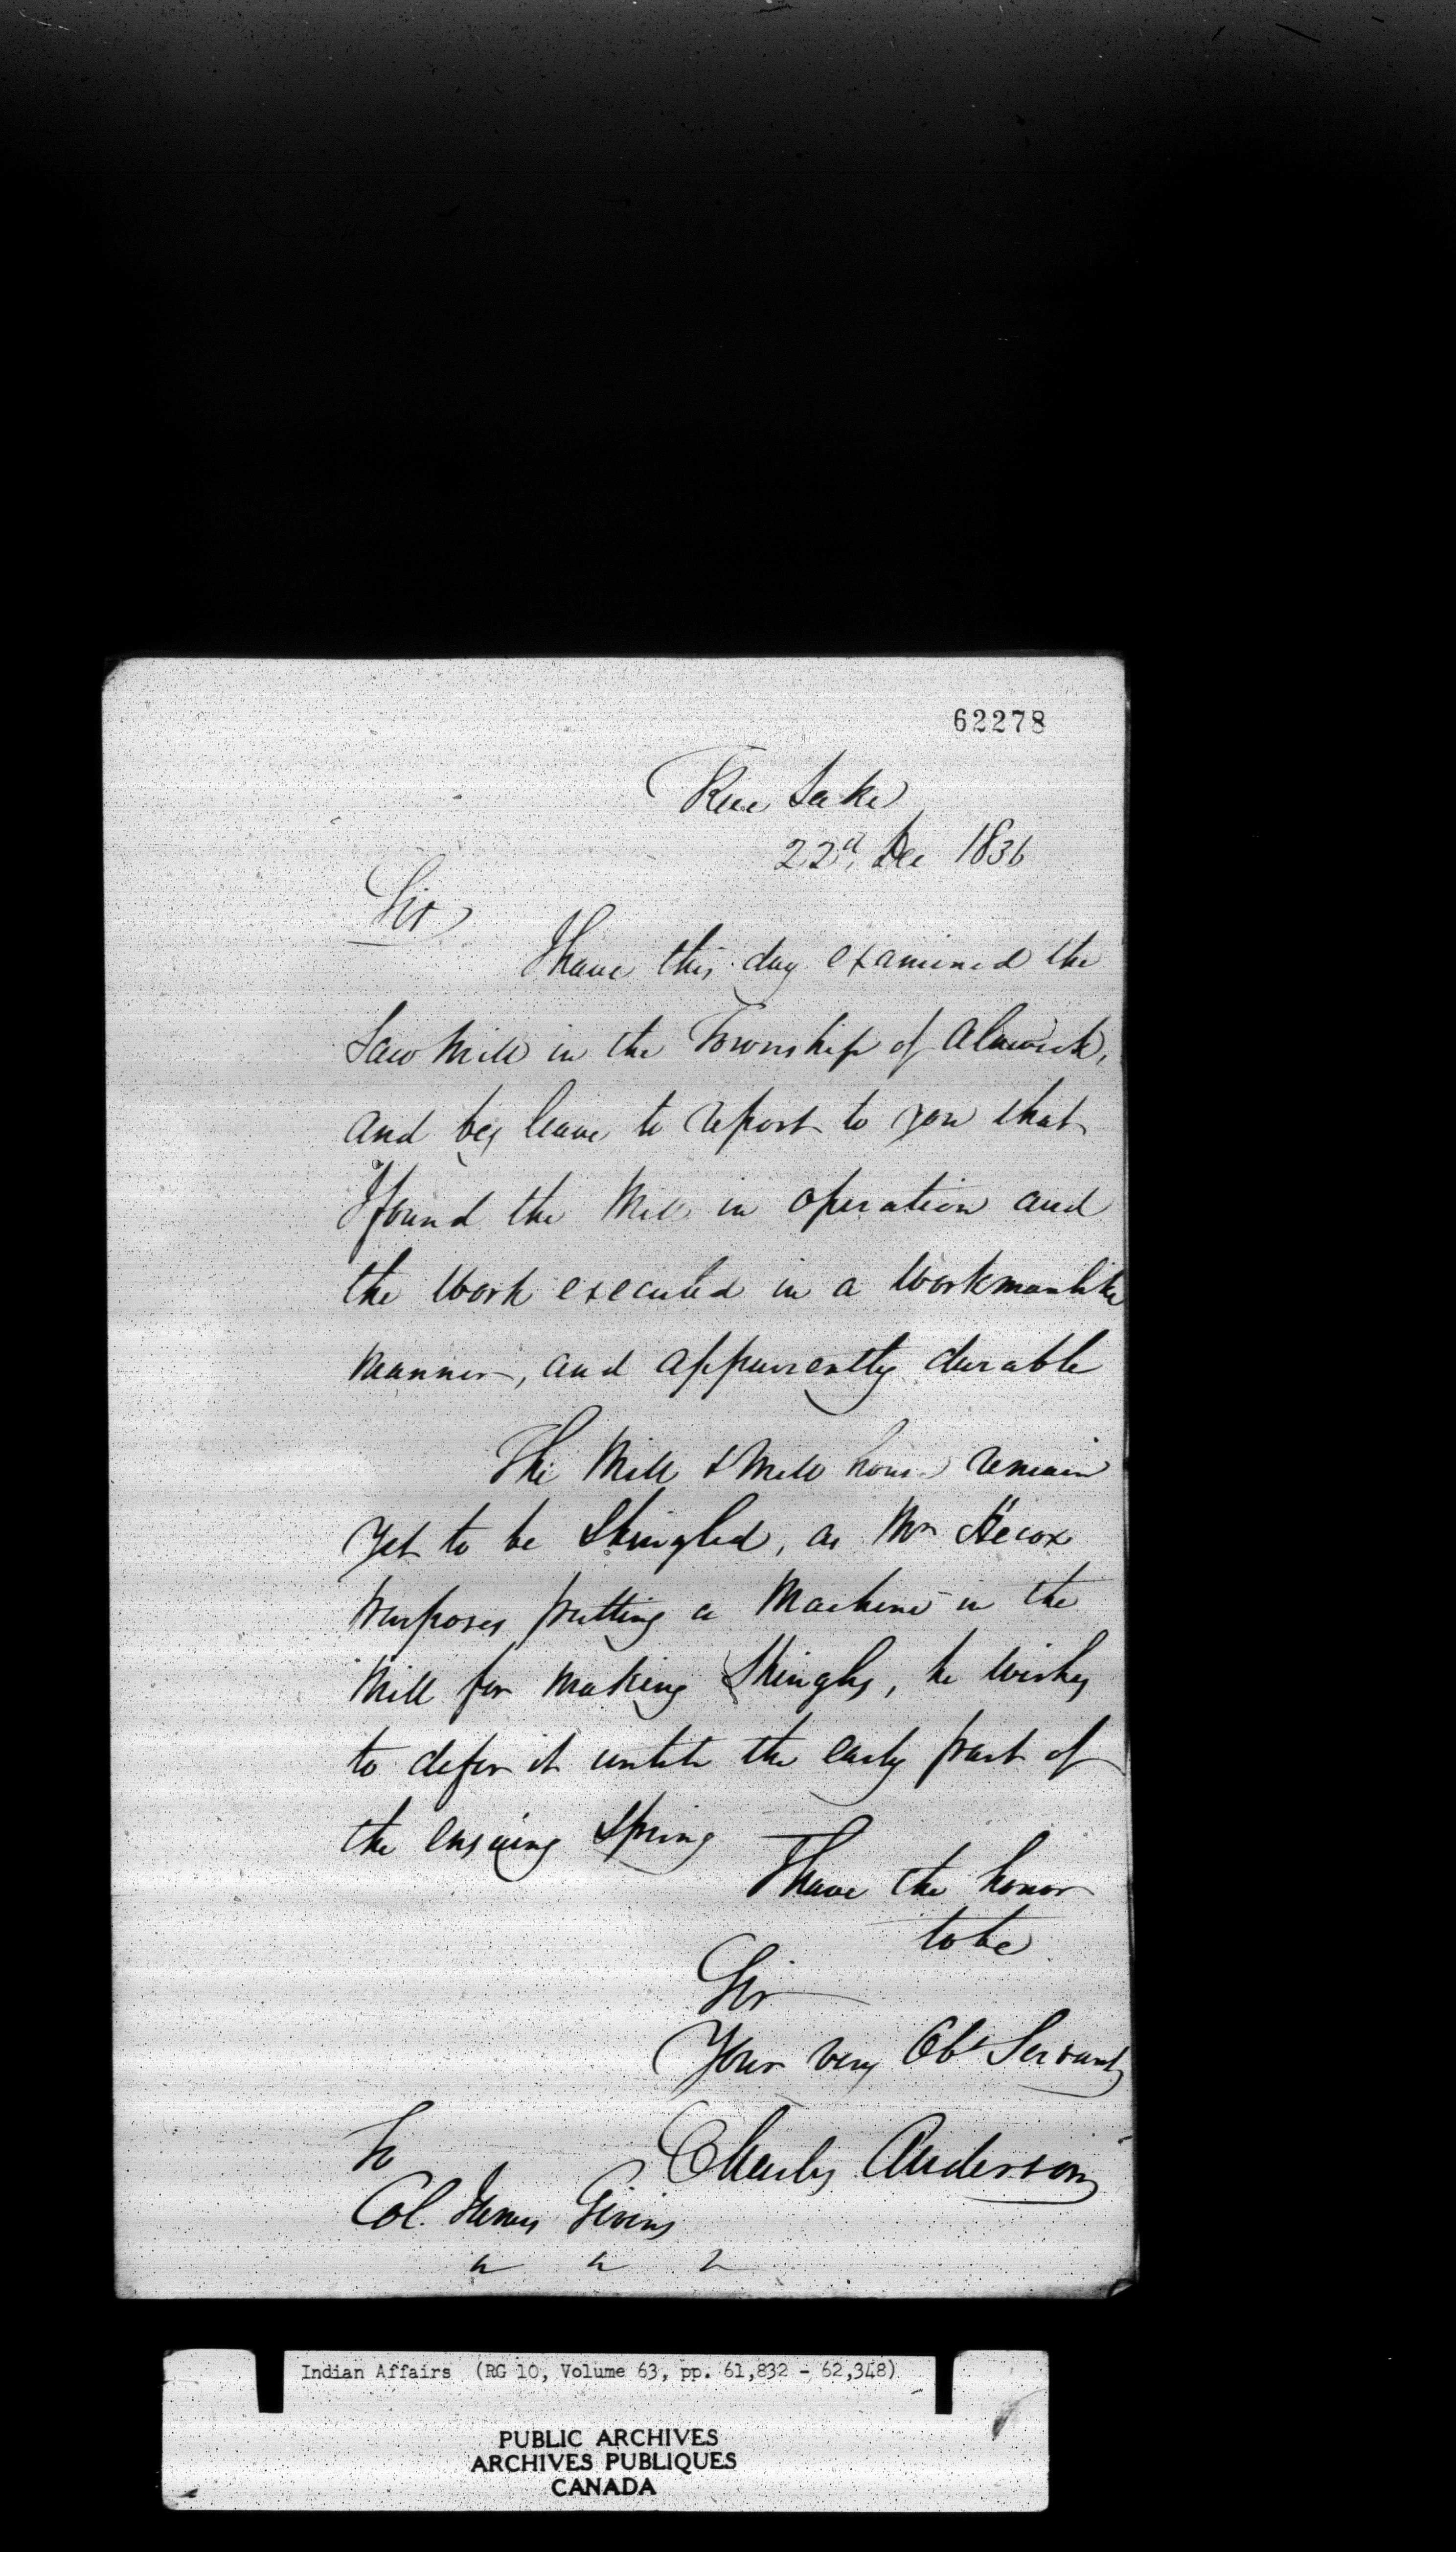 62278
Rice Lake
22d, Dec 1836
Sir
I have this day examined the
Saw Mill in the Township of Alnwick,
and beg leave to report to you that
I found the Mill in operation and
the Work executed in a Workmanlike
manner, and appairently durable
The Mill & Mill house remain
yet to be Shingled, as Mr Hecox
purposes putting a Machine in the
Mill for making Shingles, he wishes
to defer it untill the early part of
the ensuing Spring
I have the honor
to be
Sir
Your very Obt Servant
Charles Anderson
To
Col. James Givins
" " "
Indian Affairs (RG 10, Volume 63, pp. 61,832 - 62,348)
PUBLIC ARCHIVES
ARCHIVES PUBLIQUES
CANADA